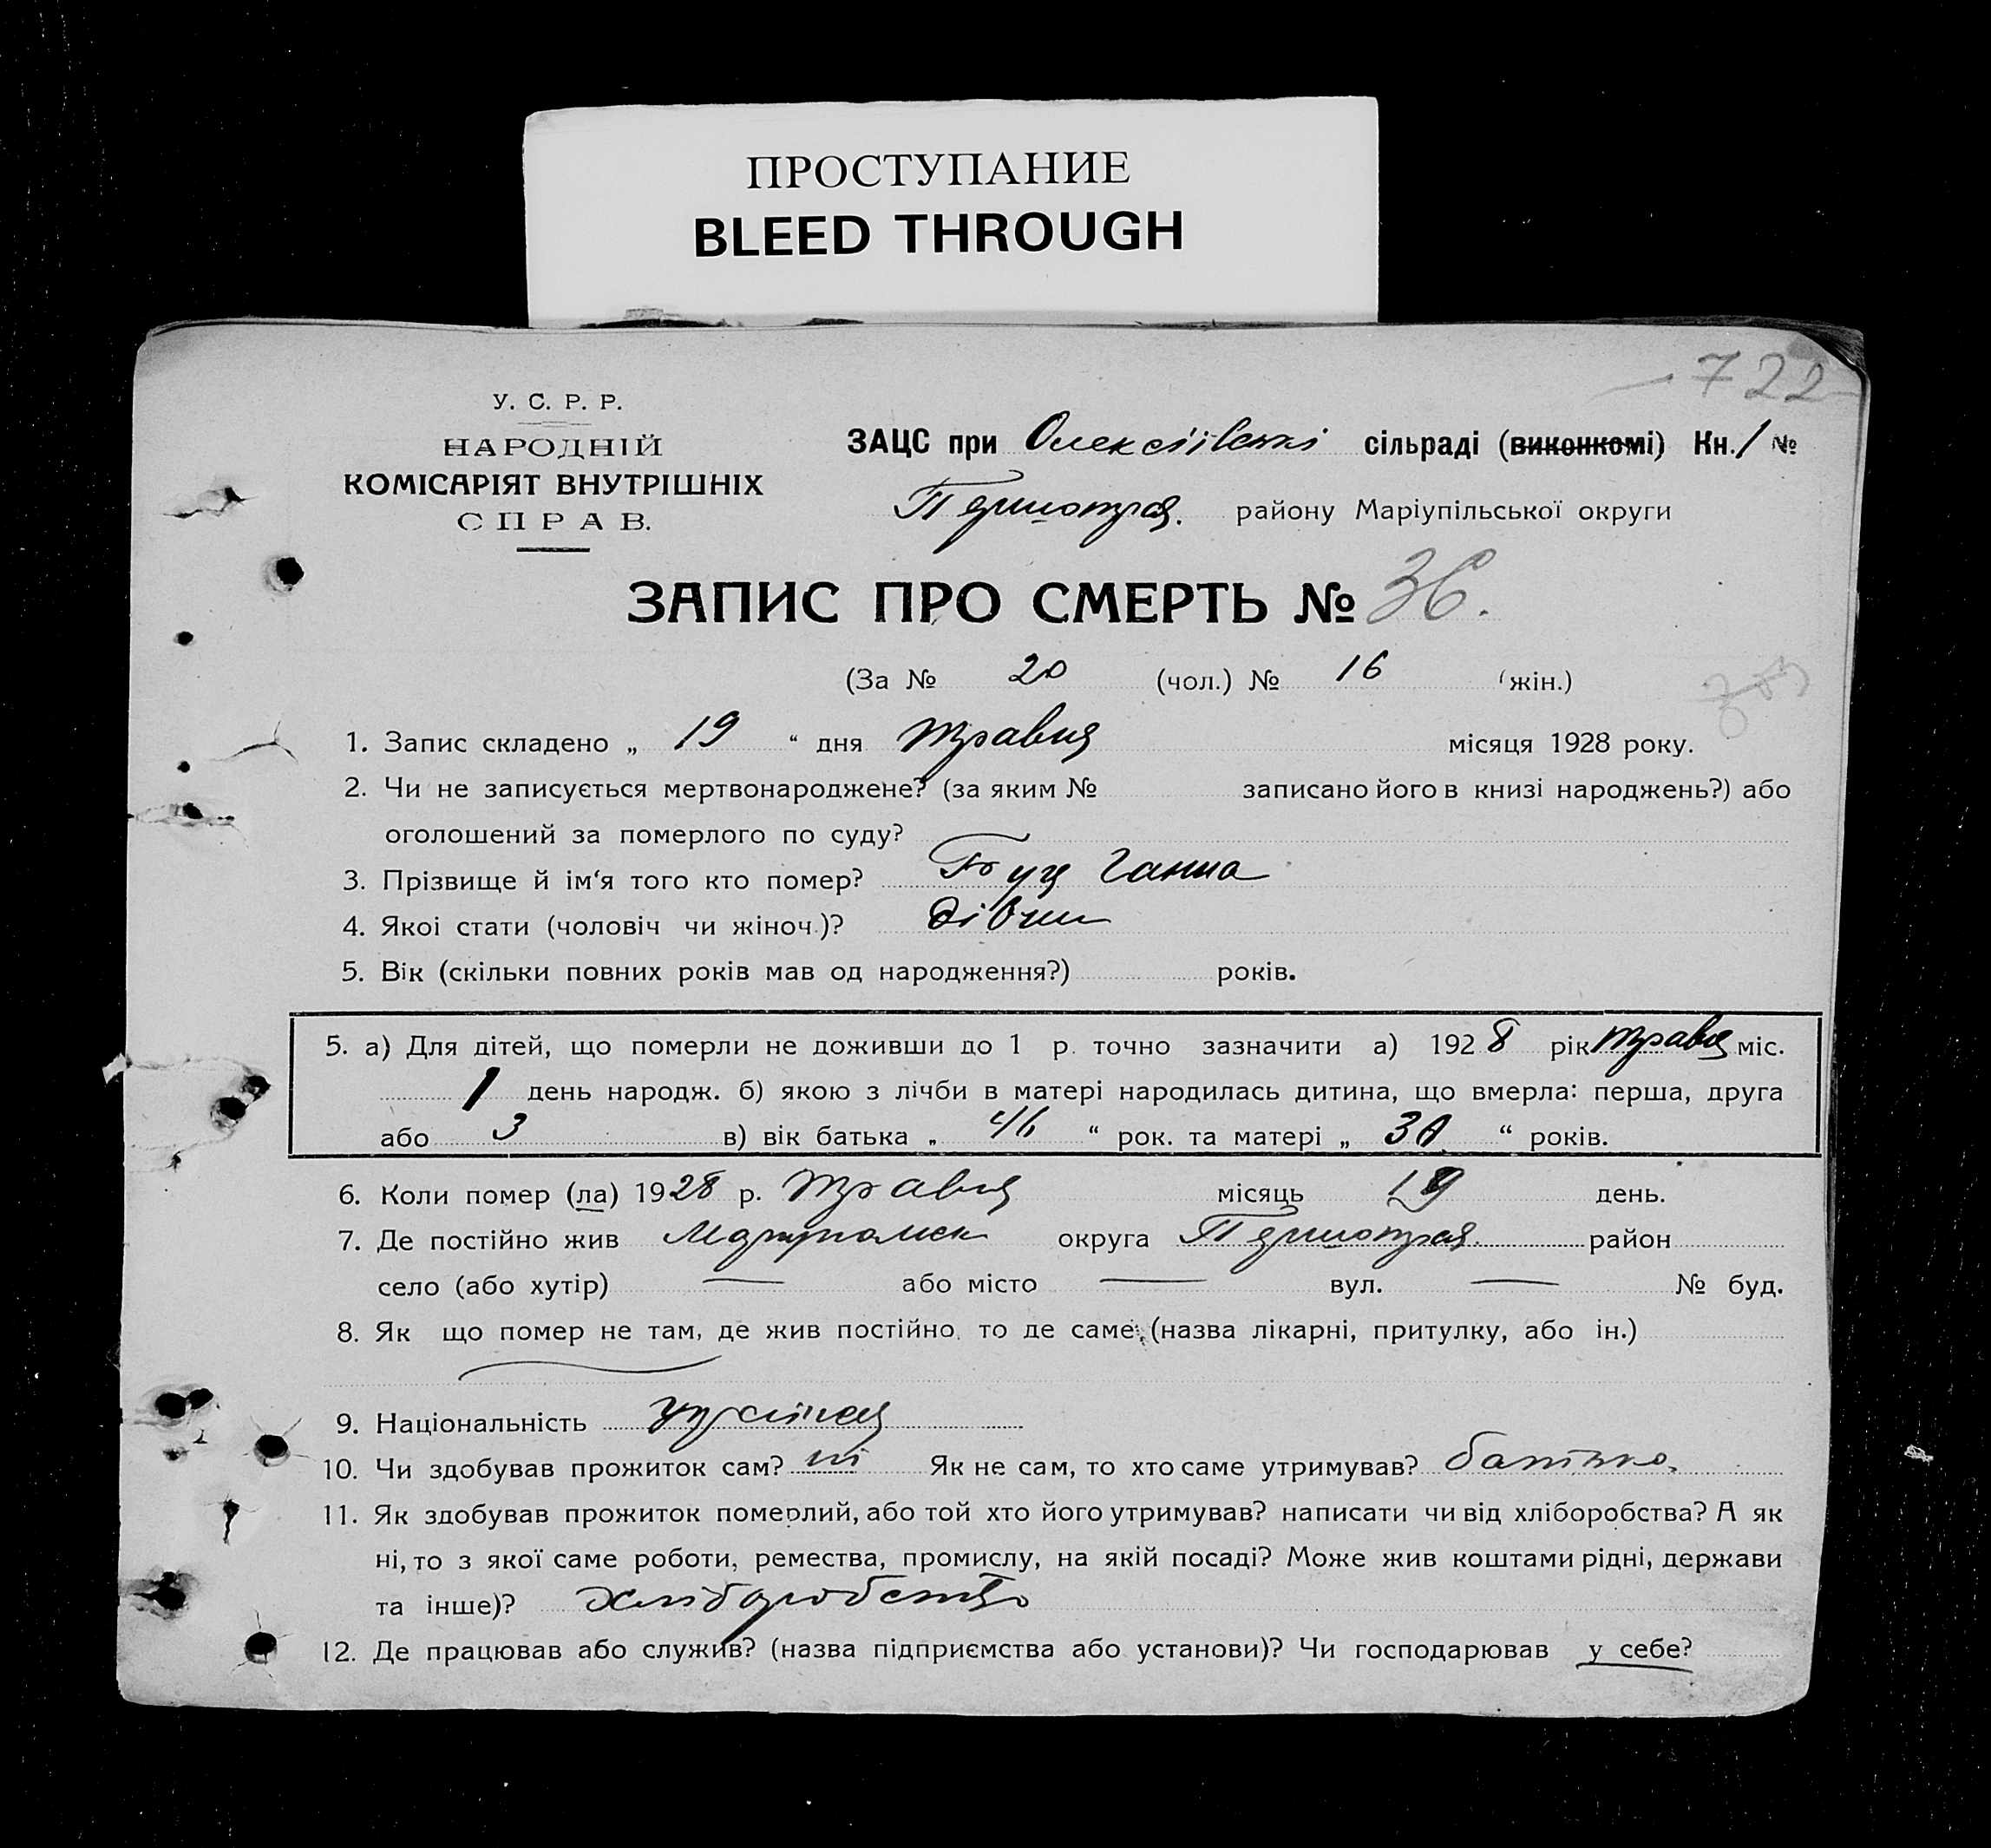 ПРОСТУПАНИЕ
BLEED THROUGH
722
У. С. Р. Р.
НАРОДНІЙ
КОМІСАРІЯТ ВНУТРІШНІХ
СПРАВ.
ЗАЦС при Олексіївські сільраді (виконкомі) Кн. 1 №
району Маріупільської округи
ЗАПИС ПРО СМЕРТЬ № 36.
(За № 20 (чол.) № 16 (жін.)
1. Запис складено „ 19 “ дня травня місяця 1928 року.
2. Чи не записується мертвонароджене? (за яким № записано його в книзі народжень?) або
оголошений за померлого по суду?
3. Прізвище й ім‘я того кто помер? Буц Ганна
4. Якої стати (чоловіч чи жіноч.)? дівчи
5. Вік (скільки повних років мав од народження?) років.
5. а) Для дітей, що померли не доживши до 1 р. точно зазначити а) 1928 рік травня міс.
1 день народж. б) якою з лічби в матері народилась дитина, що вмерла: перша, друга
або 3 в) вік батька „ 46 “ рок. та матері „ “ років.
6. Коли помер (ла) 1928 р. травня місяць 19 день.
7. Де постійно жив округа район
село (або хутір) — або місто — вул. — № буд.
8. Як що помер не там, де жив постійно, то де саме, (назва лікарні, притулку, або ін.)
9. Національність
10. Чи здобував прожиток сам? ні Як не сам, то хто саме утримував? батько.
11. Як здобував прожиток померлий, або той хто його утримував? написати чи від хліборобства? А як
ні, то з якої саме роботи, ремества, промислу, на якій посаді? Може жив коштами рідні, держави
та інше)? хліборобство
12. Де працював або служив? (назва підприємства або установи)? Чи господарював у себе?